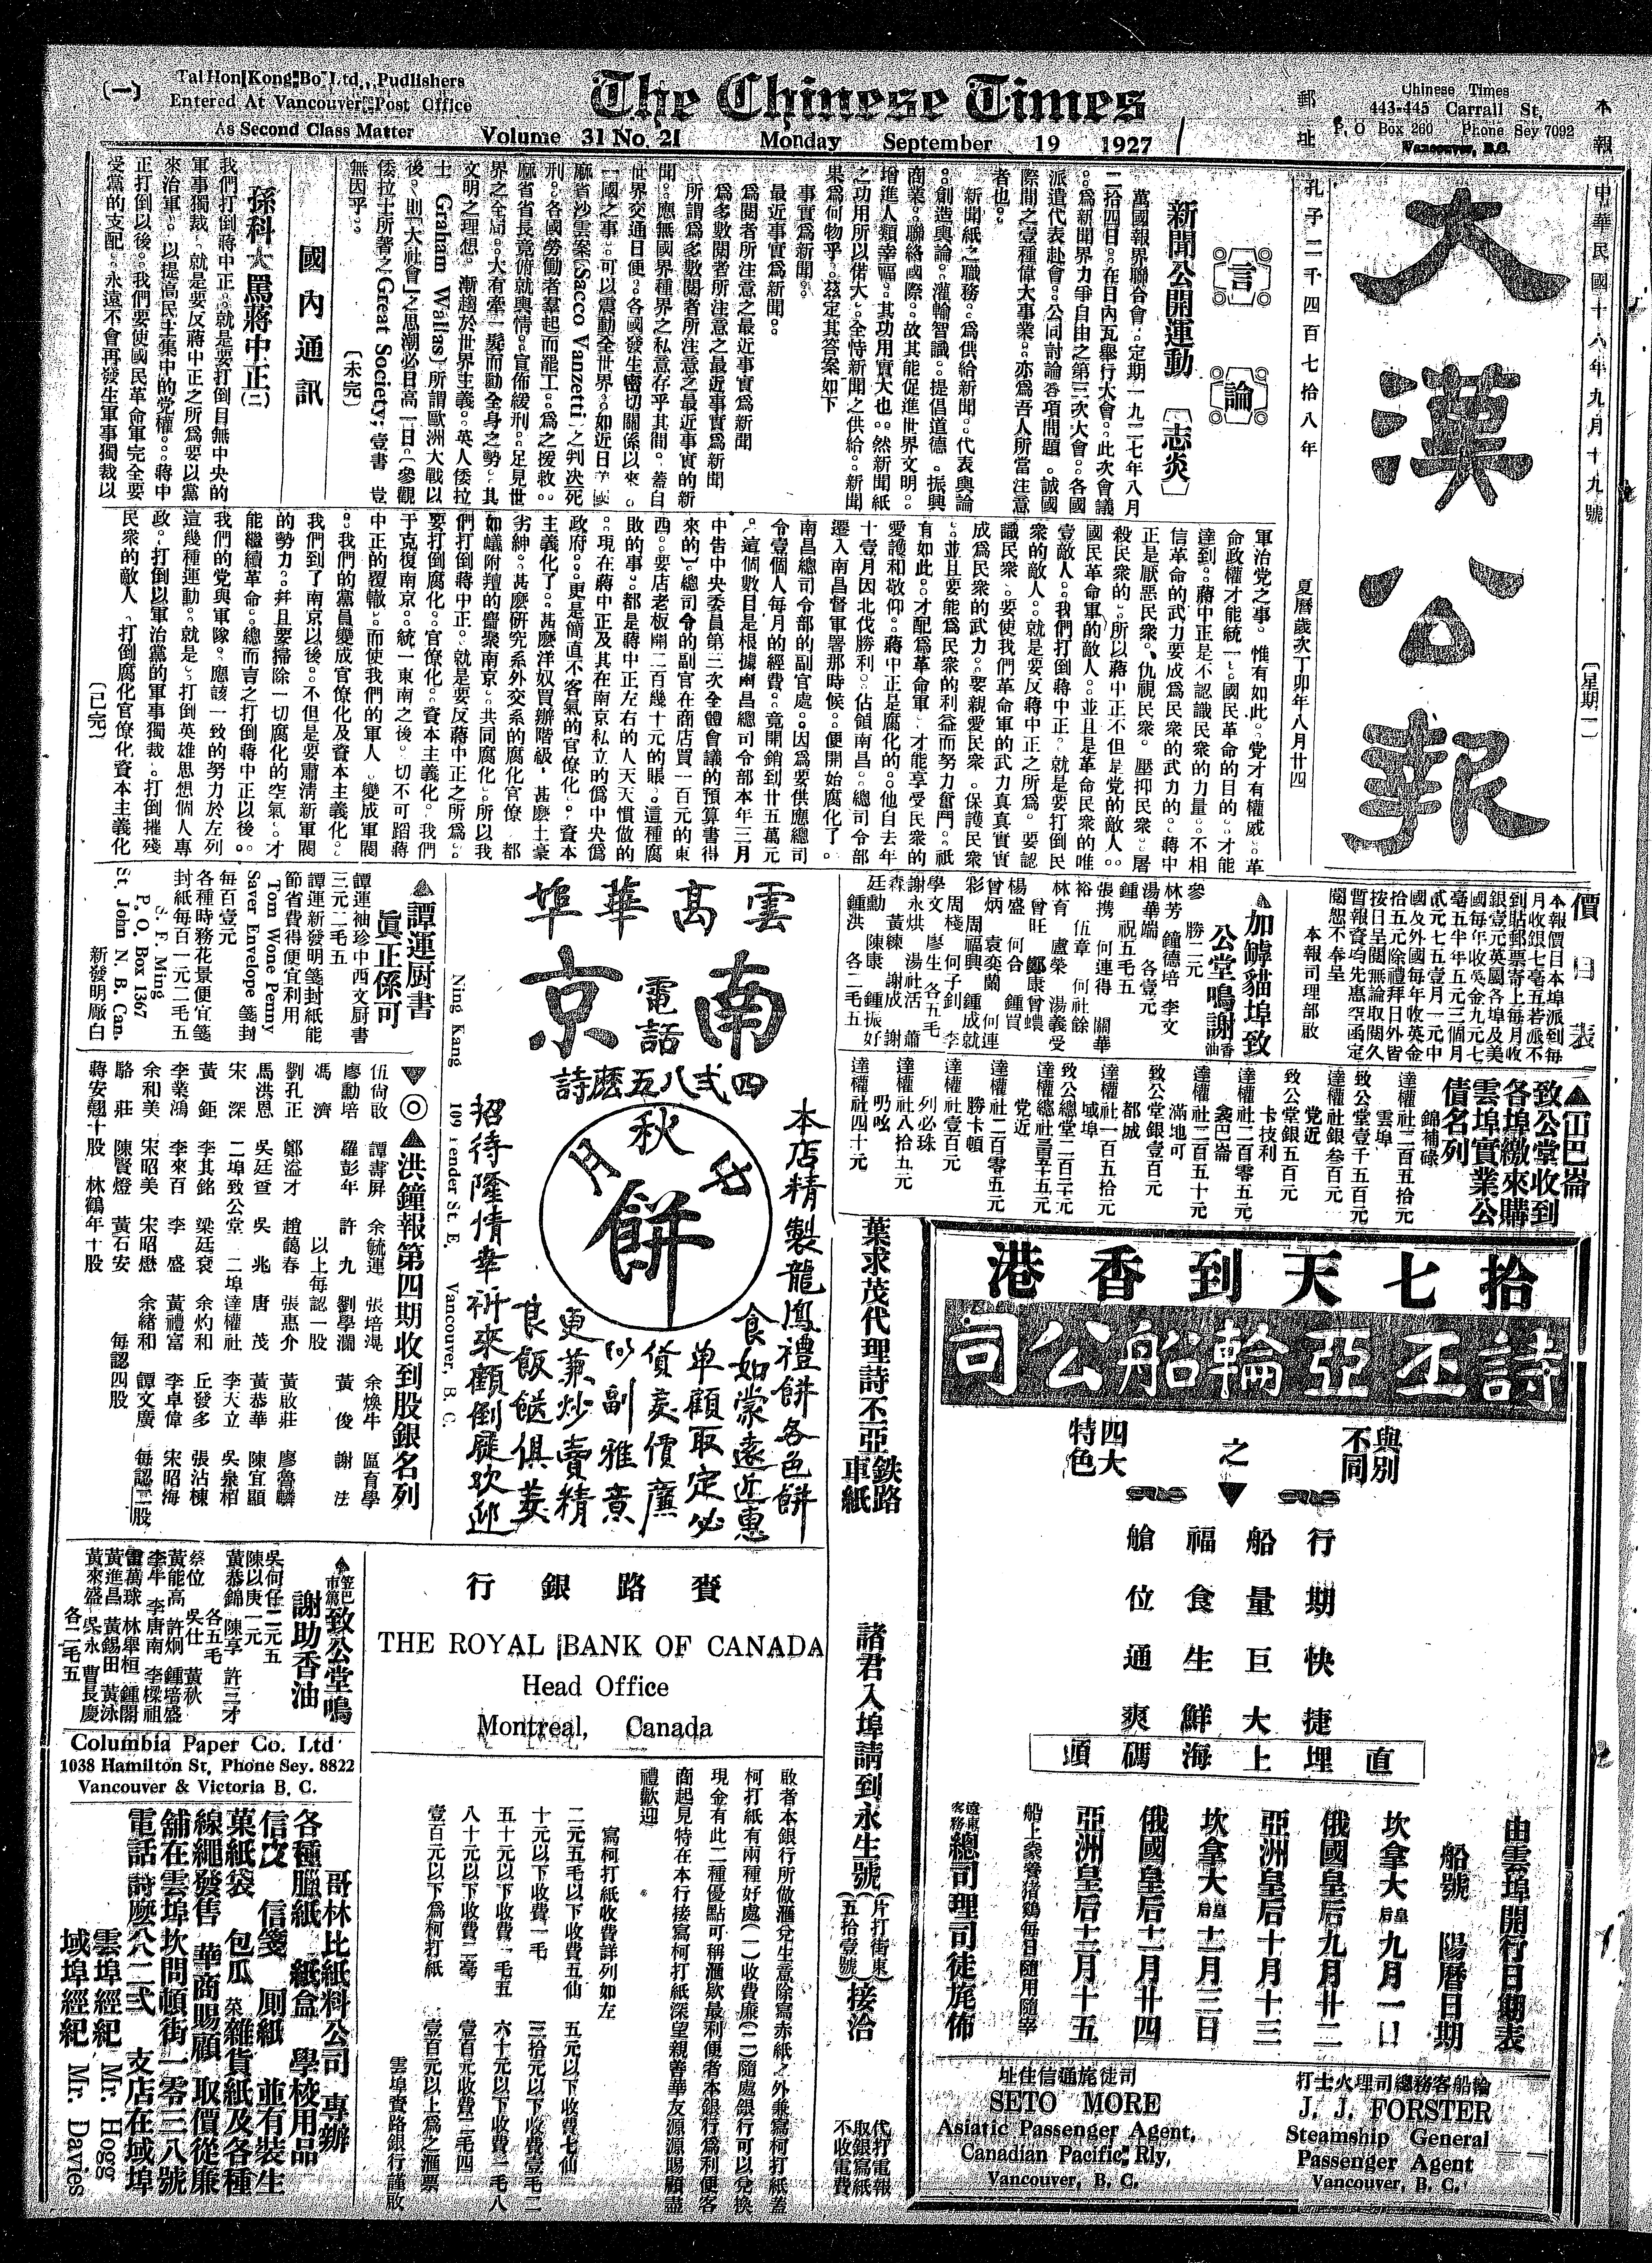 (一)
Tai Hon Kong Bo Ltd., Pudlishers
Entered At Vancouver Post Office
As Second Class Matter
The Chinese Times
Volume 31 No. 21 Monday September 19 1927
郵址
Chinese Times
443-445 Carrall St,
P. O Box 260 Phone Sey 7092
Vancouver, B.C.
本報
中華民國十六年九月十九號
〔星期一〕
大漢公報
孔子二千四百七拾八年
夏曆歲次丁卯年八月廿四
言論
新聞公開運動 〔志炎〕
萬國報界聯合會。定期一九二七年八月
二拾四日。在日內瓦舉行大會。此次會議
。爲新聞界力爭自由之第三次大會。各國
派遣代表赴會。公同討論各項問題。誠國
際間之壹種偉大事業。亦爲吾人所當注意
者也。
新聞紙之職務。爲供給新聞。代表輿論
。創造輿論。灌輸智識。提倡道德。振興
商業。聯絡國際。故其能促進世界文明。
增進人類幸福。其功用實大也。然新聞紙
之功用所以偌大。全恃新聞之供給。新聞
果爲何物乎。茲定其答案如下
事實爲新聞。
最近事實爲新聞。
爲閱者所注意之最近事實爲新聞
爲多數閱者所注意之最近事實爲新聞
所謂爲多數閱者所注意之最近事實的新
聞。應無國界種界之私意存乎其間。蓋自
世界交通日便。各國發生密切關係以來。
一國之事。可以震動全世界。如近日美國
麻省沙雲案(Sacco Vanzetti)之判决死
刑。各國勞働者羣起而罷工。爲之援救。
麻省省長竟俯就輿情。宣佈緩刑。足見世
界之全局。大有牽一髮而動全身之勢。其
文明之理想。漸趨於世界主義。英人倭拉
士 Graham Wallas]所謂歐洲大戰以
後。則[大社會]之思潮必日高一日。(參觀
倭拉士所著之Great Society;壹書 豈
無因乎。
〔未完〕
國內通訊
孫科大罵蔣中正(二)
我們打倒蔣中正。就是要打倒目無中央的
軍事獨裁。就是要反蔣中正之所爲要以黨
來治軍。以提高民主集中的党權。蔣中
正打倒以後。我們要使國民革命軍完全要
受黨的支配。永遠不會再發生軍事獨裁以
軍治党之事。惟有如此。党才有權威。革
命政權才能統一。國民革命的目的。才能
達到。蔣中正是不認識民衆的力量。不相
信革命的武力要成爲民衆的武力的。蔣中
正是厭惡民衆。仇視民衆。壓抑民衆。屠
殺民衆的。所以蔣中正不但是党的敵人。
國民革命軍的敵人。並且是革命民衆的唯
壹敵人。我們打倒蔣中正。就是要打倒民
衆的敵人。就是要反蔣中正之所爲。要認
識民衆。要使我們革命軍的武力真真實實
成爲民衆的武力。要親愛民衆。保護民衆
。並且要能爲民衆的利益而努力奮鬥。祇
有如此。才配爲革命軍。才能享受民衆的
愛護和敬仰。蔣中正是腐化的。他自去年
十壹月因北伐勝利。佔領南昌。總司令部
遷入南昌督軍署那時候。便開始腐化了。
南昌總司令部的副官處。因爲要供應總司
令壹個人每月的經費。竟開銷到廿五萬元
。這個數目是根據南昌總司令部本年三月
中告中央委員第三次全體會議的預算書得
來的)總司令的副官在商店買一百元的東
西。要店老板開二百幾十元的賬。這種腐
敗的事。都是蔣中正左右的人天天慣做的
。現在蔣中正及其在南京私立的僞中央僞
政府。更是簡直不客氣的官僚化。資本
主義化了。甚麽洋奴買辦階級。甚麽土豪
劣紳。甚麽研究系外交系的腐化官僚 都
如蟻附羶的齊衆南京。共同腐化。所以我
們打倒蔣中正。就是要反蔣中正之所爲。
要打倒腐化。官僚化。資本主義化。我們
于克復南京。統一東南之後。切不可蹈蔣
中正的覆轍。而使我們的軍人 變成軍閥
。我們的黨員變成官僚化及資本主義化。
我們到了南京以後。不但是要肅淸新軍閥
的勢力。并且要掃除一切腐化的空氣。才
能繼續革命。總而言之打倒蔣中正以後。
我們的党與軍隊。應該一致的努力於左列
這幾種運動。就是。打倒英雄思想個人專
政。打倒以軍治黨的軍事獨裁。打倒摧殘
民衆的敵人。打倒腐化官僚化資本主義化
〔已完〕
價目表
本報價目本埠派到每
月收銀七毫五若派不
到貼郵票寄上每月收
銀壹元英國各埠及美
國每年收美金九元七
毫五半年五元三個月
貳元七五壹月一元中
國及外國每年收英金
拾五元除禮拜日外皆
按日呈閱無論取閱久
暫報資均先惠空函定
閱恕不奉呈
本報司理部啟
加罅貓埠致
公堂鳴謝香油
參 勝二元
林芳 鐘德培 李文
湯華端 各壹元
鍾 祝五毛五
張携 何連得 關華
裕 伍章 何社餘
林育 盧榮 湯義受
曾旺 鄭康曾蟻
楊盛 何合 鍾買
曾炳 袁奕蘭 何連
彩 周福興 鍾成就
周棧 何子釗 李
學文 廖生 各五毛
謝永烘 湯社活 蕭
森 黃練 謝成 謝
廷勳 陳康 鍾振好
鍾洪 各二毛五
▲㞢巴崙
致公堂收到
各埠繳來購
雲埠實業公
債名列
錦補碌
達權社二百五拾元
雲埠
致公堂壹千五百元
達權社銀叁百元
党近
致公堂銀五百元
卡技利
達權社二百零五元
㞢巴崙
達權社二百五十元
滿地可
致公堂銀壹百元
都城
達權社一百五拾元
域埠
致公總堂二百二十元
達權總社三百三十五元
党近
達權社二百零五元
勝卡頓
達權社壹百元
列必珠
達權社八拾五元
叨吆
達權社四十元
雲高華埠
南京
電話
詩麽五八弍四
Ning Kang 109 Pender St. E. Vancouver, B. C.
中秋月餅
本店精製龍鳳禮餅各色餅
食如蒙遠近惠
單顧取定必
貨羙價廉
以副雅意
更兼炒賣精
良飯餸俱羙
招待隆情幸祈來顧倒屐欢迎
▲譚運厨書
眞正係可
譚運袖珍中西文厨書
三元二毛五
譚運新發明箋封紙能
節省費得便宜利用
Tom Wone Penny
Saver Envelope 箋封
每百壹元
各種時務花景便宜箋
封紙每百一元二毛五
S. F. Ming
P. O. Box 1367
St. John N. B. Can.
新發明廠白
▼◎▲洪鐘報第四期收到股銀名列
伍尙敢 譚壽屏 余毓運 張培混 余煥牛 區育學
廖勳培 羅彭年 許九 劉學瀾 黃俊 謝法
馮濟 以上每認一股
劉孔正 鄭溢才 趙藹春 張惠介 黃啟莊 廖魯麟
馬洪恩 吳廷查 吳兆 唐茂 黃恭華 陳宜顯
宋深 二埠致公堂 二埠達權社 李大立 吳衆栢
黃鉅 李其銘 梁廷衮 余灼和 丘發多 張沾棟
李業鴻 李來百 李盛 黃禮富 李卓偉 宋昭海
余和美 宋昭美 宋昭懋 余緒和 譚文廣 每認二股
駱莊 陳賢燈 黃石安 每認四股
蔣安翹十股 林鶴年十股
拾七天到香港
詩丕亞輪船公司
與別不同
之
四大特色
行期快捷
船量巨大
福食生鮮
艙位通爽
直埋上海碼頭
由雲埠開行日期表
船號 陽曆日期
坎拿大皇后九月一日
俄國皇后九月廿二
亞洲皇后十月十三
坎拿大皇后十一月三日
俄國皇后十一月廿四
亞洲皇后十二月十五
船上豢養猪鷄每日隨用隨宰
遠東客務總司理司徒旄佈
司徒旄通信住址
SETO MORE
Asiatic Passenger Agent,
Canadian Pacific Rly,
Vancouver, B. C.
輪船客務總司理火士打
J. J. FORSTER
Steamship General
Passenger Agent
Vancouver, B. C.
葉求茂代理詩丕亞鉄路車紙
諸君入埠請到永生號(片打街東五拾壹號)接洽
代打電報
取銀寫紙
不收電費
▲笠巴市篤致公堂鳴
謝助香油
吳何仔二元五
陳以庚一元
黃恭錦 陳享 許三才
各五毛
蔡位 吳仕 黃秋
黃能高 許炯 鍾培盛
李牛 李唐南 李樑祖
雷萬球 林舉桓 鍾閣
黃進昌 黃錫田 黃泳
黃來盛 吳永 曹長慶
各二毛五
Columbia Paper Co. Ltd
1038 Hamilton St, Phone Sey. 8822
Vancouver & Victoria B. C.
哥林比紙料公司 專辦
各種臘紙 紙盒 學校用品
信皮 信箋 厠紙 並有裝生
菓紙袋 包瓜菜雜貨紙及各種
線繩發售 華商賜顧 取價從廉
舖在雲埠坎問頓街一零三八號
電話 詩麽八八二弍 支店在域埠
雲埠經紀 Mr. Hogg
域埠經紀 Mr. Davies
賚路銀行
THE ROYAL BANK OF CANADA
Head Office
Montreal, Canada
敢者本銀行所做滙兌生意除寫赤紙之外兼寫柯打紙蓋
柯打紙有兩種好處(一)收費廉(二)隨處銀行可以兌換
現金有此二種優點可稱滙欵最利便者本銀行爲利便客
商起見特在本行接寫柯打紙深望親善華友源源賜顧盡
禮歡迎
寫柯打紙收費詳列如左
二元五毛以下收費五仙 五元以下收費七仙
十元以下收費一毛 三拾元以下收費壹毛二
五十元以下收費一毛五 六十元以下收費一毛八
八十元以下收費二毫 壹百元收費二毛四
壹百元以下爲柯打紙 壹百元以上爲之滙票
雲埠賚路銀行謹敢